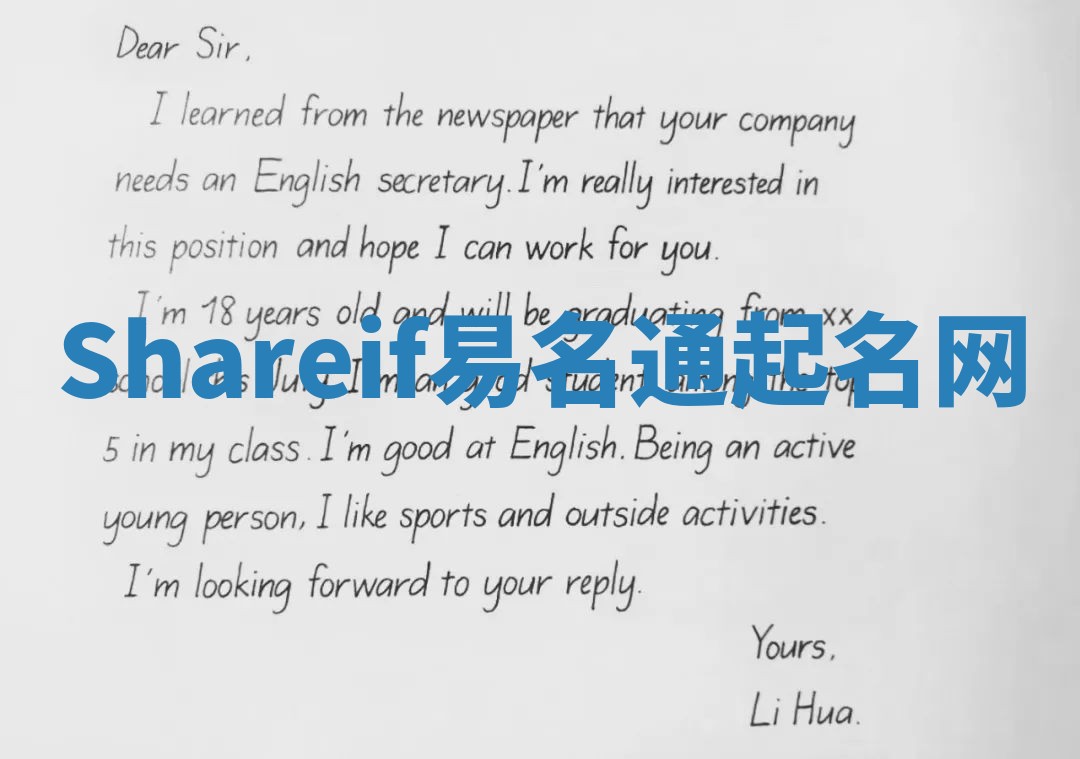 Dear Sir,
I learned from the newspaper that your company
needs an English secretary. I'm really interested in
this position and hope I can work for you.
I'm 18 years old and will be graduating from xx
Shareif易名通起名网
school this July. I'm a good student among the top
5 in my class. I'm good at English. Being an active
young person, I like sports and outside activities.
I'm looking forward to your reply.
Yours,
Li Hua.